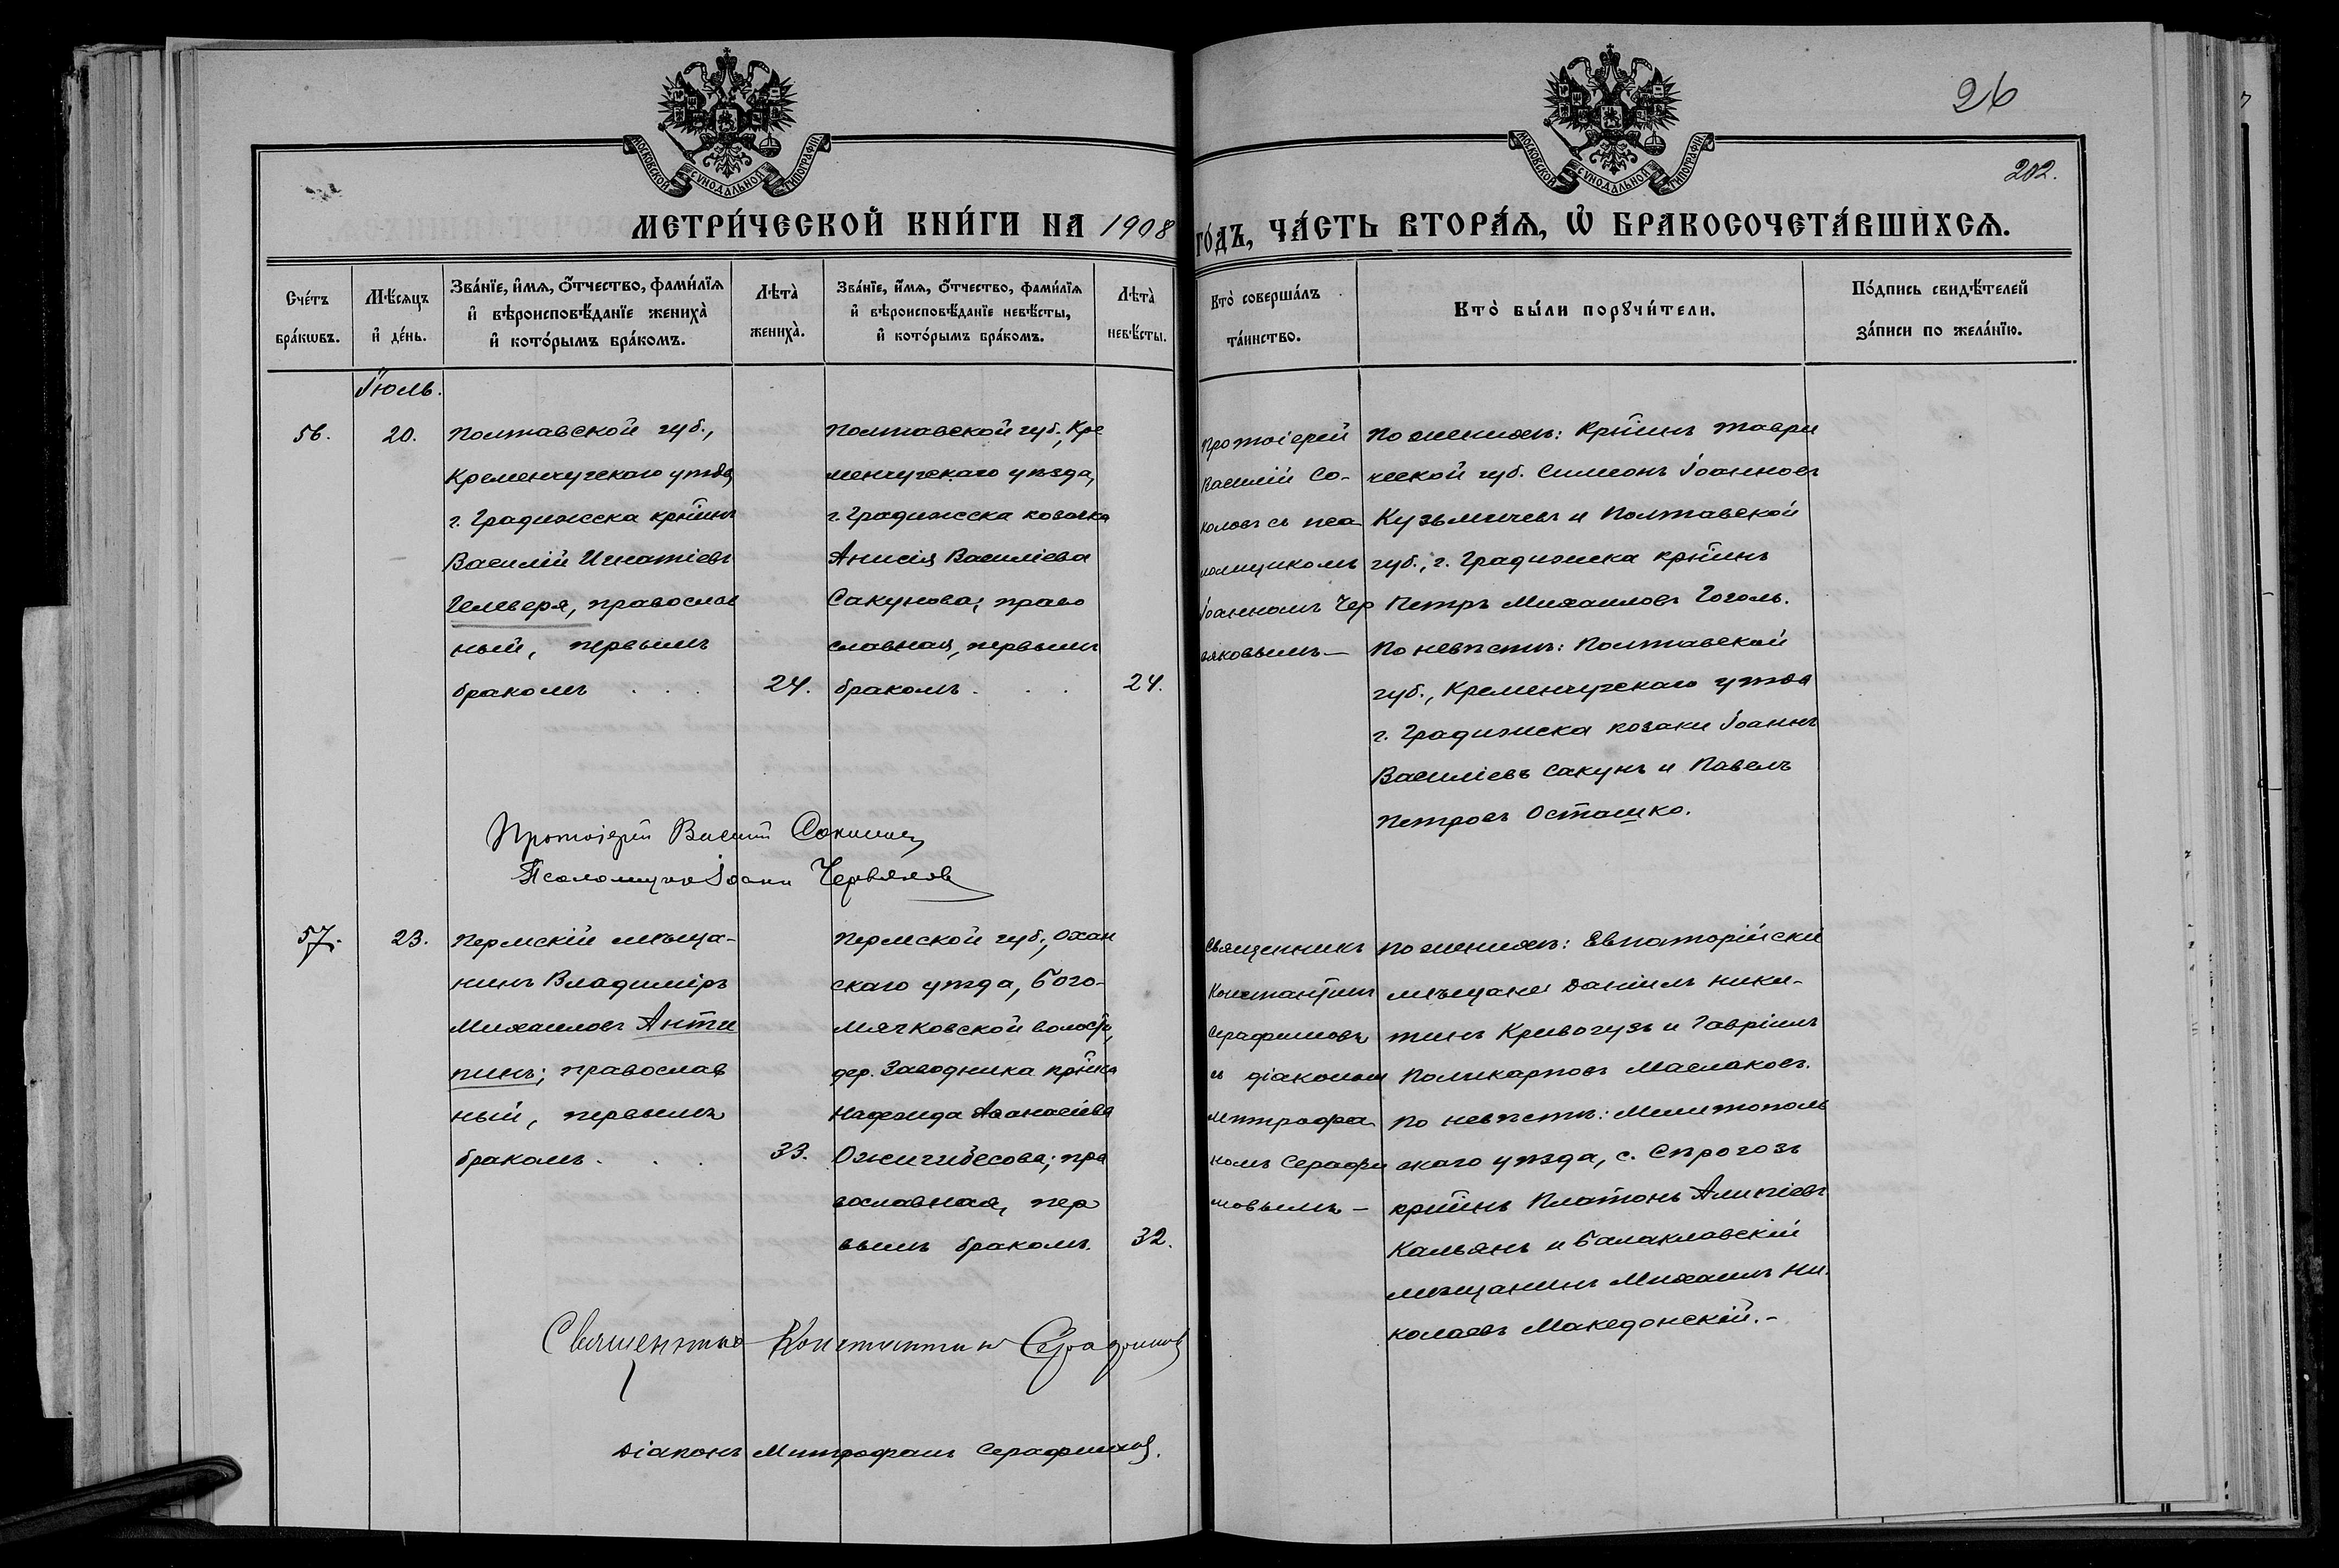 26
202.
МОСКОВСКОЙ СѴНОДАЛЬНОЙ ТИПОГРАФІИ
МОСКОВСКОЙ СѴНОДАЛЬНОЙ ТИПОГРАФІИ
МЕТРИ́ЧЕСКОЙ КНИ́ГИ НА 1908 ГО́ДЪ, ЧА́СТЬ ВТОРА́Ѧ, Ѡ҆ БРАКОСОЧЕТА́ВШИХСѦ.
Сче́тъ
бра́кѡвъ.
Мѣ́сяцъ
и҆ де́нь.
Зва́нїе, и҆́мя, ѻ҆́тчество, фами́лїя
и҆ вѣроисповѣ́данїе жениха̀
и҆ кото́рымъ бра́комъ.
Лѣта̀
жениха̀.
Зва́нїе, и҆́мя, ѻ҆́тчество, фами́лїя
и҆ вѣроисповѣ́данїе невѣ́сты,
и҆ кото́рымъ бра́комъ.
Лѣта̀
невѣ́сты.
Кто̀ соверша́лъ
та́инство.
Кто̀ бы́ли порꙋчи́тели.
По́дпись свидѣ́телей
за́писи по жела́нїю.
Іюль.
56.
20.
Полтавской губ.,
Кременчугскаго уѣзда,
г. Градижска крнинъ
Василій Игнатіевъ
Челеверя, православ
ный, первымъ
бракомъ . . .
24.
Полтавской губ., Кре
менчугскаго уѣзда,
г. Градижска козачка
Анисія Василіева
Сакунова; право
славная, первымъ
бракомъ . . .
24.
Протоіерей
Василій Со-
коловъ съ пса
ломщикомъ
Іоанномъ Чер
вяковымъ —
По женихѣ: Крнинъ Таври
ческой губ. Симеонъ Іоанновъ
Кузьмичевъ и Полтавской
губ., г. Градижска крнинъ
Петръ Михаиловъ Гоголь.
По невѣстѣ: Полтавской
губ., Кременчугскаго уѣзда
г. Градижска козаки Іоаннъ
Василіевъ Сакунъ и Павелъ
Петровъ Осташко.
Протоіерей Василій Соколовъ
Псаломщикъ Іоаннъ Червяковъ
57.
23.
Пермскій мѣща-
нинъ Владиміръ
Михаиловъ Анти
пинъ; православ
ный, первымъ
бракомъ . . .
33.
Пермской губ., Охан
скаго уѣзда, Бого-
мячковской волости,
дер. Заводчика крнка
Надежда Аѳанасіева
Ожигибесова; пра
вославная, пер
вымъ бракомъ.
32.
Священникъ
Константинъ
Серафимовъ
съ діакономъ
Митрофа
номъ Серафи
мовымъ —
По женихѣ: Евпаторійскіе
мѣщане Даніилъ Ники-
тинъ Кривогузъ и Гавріилъ
Поликарповъ Маслаковъ.
По невѣстѣ: Мелитополь
скаго уѣзда, с. Строгозъ
крнинъ Платонъ Алипіевъ
Кальянъ и Балаклавскій
мѣщанинъ Михаилъ Ни-
колаевъ Македонскій. —
Священникъ Константинъ Серафимовъ
Діаконъ Митрофанъ Серафимовъ.